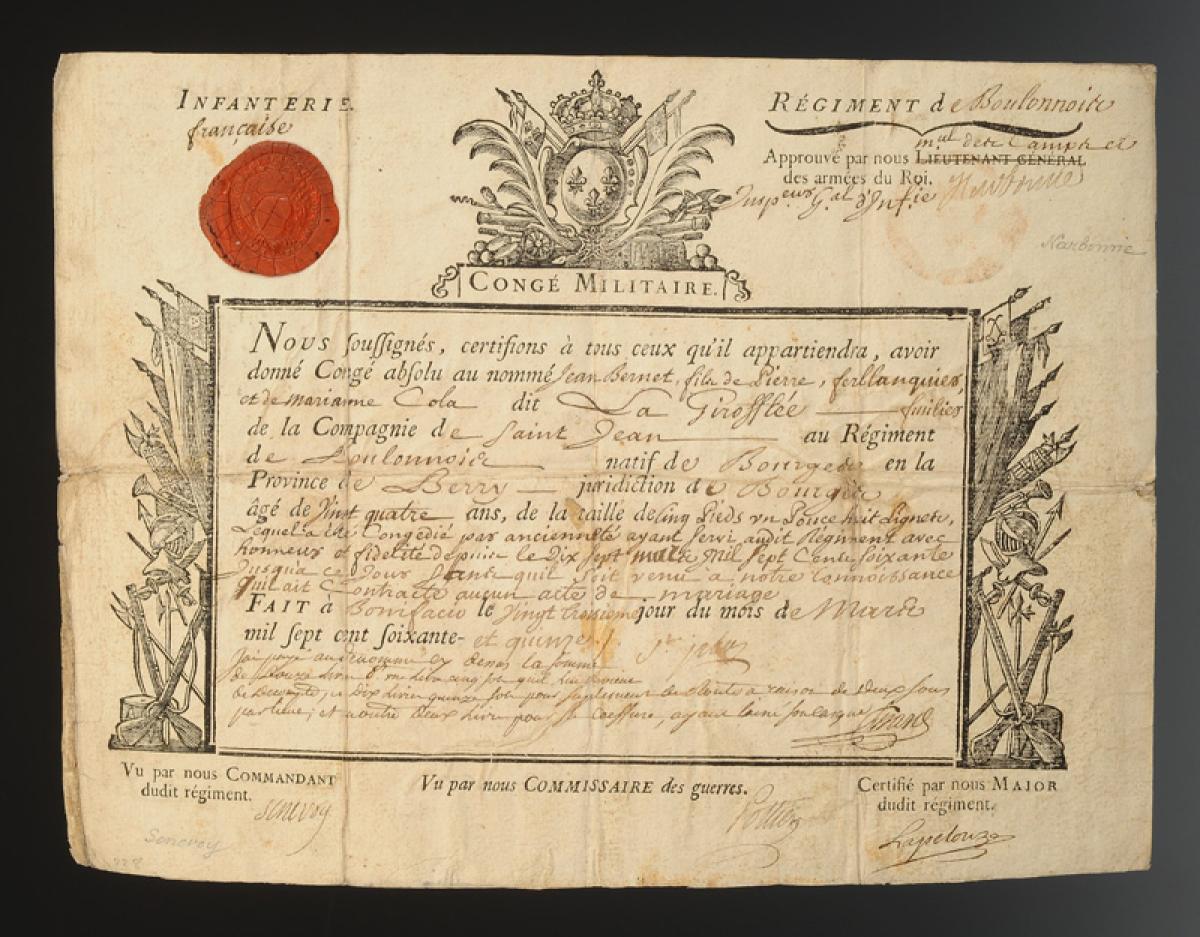 INFANTERIE.
française
RÉGIMENT de Boulonnois
mal des Camps et
Approuvé par nous LIEUTENANT GÉNÉRAL
des armées du Roi.
Inspeur Gal d'Infie Narbonne
Narbonne
CONGÉ MILITAIRE.
NOUS soussignés, certifions à tous ceux qu'il appartiendra, avoir
donné Congé absolu au nommé Jean Bernet, fils de Pierre, ferblanquier,
et de marianne Cola dit La Girofflée fusilier
de la Compagnie de Saint Jean au Régiment
de Boulonnois natif de Bourges en la
Province de Berry jurisdiction de Bourges
âgé de Vint quatre ans, de la taille de Cinq Pieds un Pouce huit Lignes,
Lequel a été Congédié par ancienneté ayant Servi audit Régiment avec
honneur et fidélité depuis le Dix Sept mil Sept Cents Soixante
Jusqu'a ce Jour Sans quil Soit venu a notre Connoissance
quil ait Contracté aucun acte de mariage
FAIT à Bonifacio le Vingt troisieme jour du mois de Mars
mil sept cent soixante- et quinze
J'ai payé au denommé cy dessus la Somme
de Douze Livres Sols quil
de Decompte, Dix Livres quinze Sols pour Suplement de Route a raison de deux Sous
par lieue; et outre deux Livres pour Sa Coeffure, ayant laissé
Vu par nous COMMANDANT
dudit régiment.
Senevoy
Senevoy
Vu par nous COMMISSAIRE des guerres.
Pottier
Certifié par nous MAJOR
dudit régiment.
Lapelouze